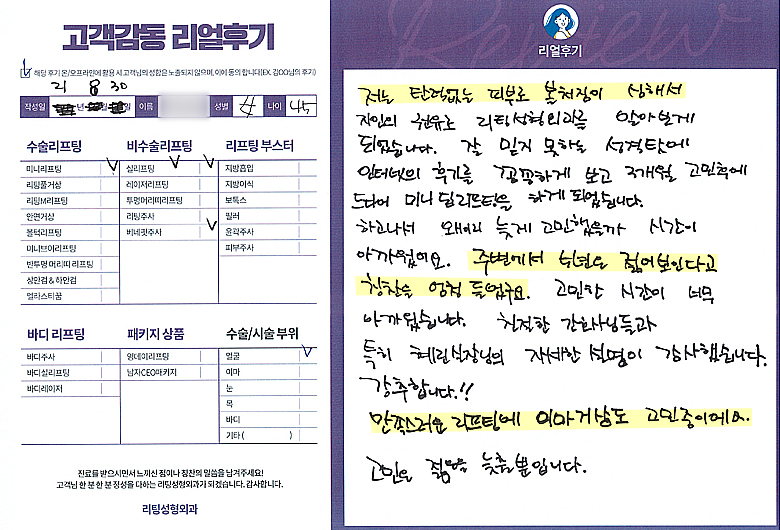 고객감동 리얼후기
해당 후기 온/오프라인에 활용 시 고객님의 성함은 노출되지 않으며, 이에 동의 합니다(EX. 김OO님의 후기)
21 8 30
작성일 년 월 일 이름 성별 나이 45
수술리프팅
미니리프팅
리팅풀거상
리팅M리프팅
안면거상
볼턱리프팅
미니브이리프팅
반투명 머리띠 리프팅
상안검 & 하안검
얼라스티꿈
비수술리프팅
실리프팅
레이저리프팅
투명머리띠리프팅
리팅주사
비네핏주사
리프팅 부스터
지방흡입
지방이식
보톡스
필러
윤곽주사
피부주사
바디 리프팅
바디주사
바디실리프팅
바디레이저
패키지 상품
원데이리프팅
남자CEO패키지
수술/시술 부위
얼굴
이마
눈
목
바디
기타 ( )
진료를 받으시면서 느끼신 점이나 칭찬의 말씀을 남겨주세요!
고객님 한 분 한 분 정성을 다하는 리팅성형외과가 되겠습니다. 감사합니다.
리팅성형외과
Review
리얼후기
저는 탄력없는 피부로 볼처짐이 심해서
지인의 권유로 리팅성형외과를 알아보게
되었습니다. 잘 믿지 못하는 성격탓에
인터넷의 후기를 꼼꼼하게 보고 3개월 고민후에
드디어 미니 실리프팅을 하게 되었습니다.
하고나서 왜이리 늦게 고민했을까 시간이
아까웠어요. 주변에서 5년은 젊어보인다고
칭찬을 엄청 들었구요. 고민한 시간이 너무
아까웠습니다. 친절한 간호사님들과
특히 혜린실장님의 자세한 설명이 감사했습니다.
강추합니다.!!
만족스러운 리프팅에 이마거상도 고민중이에요.
고민은 젊음을 늦출뿐입니다.